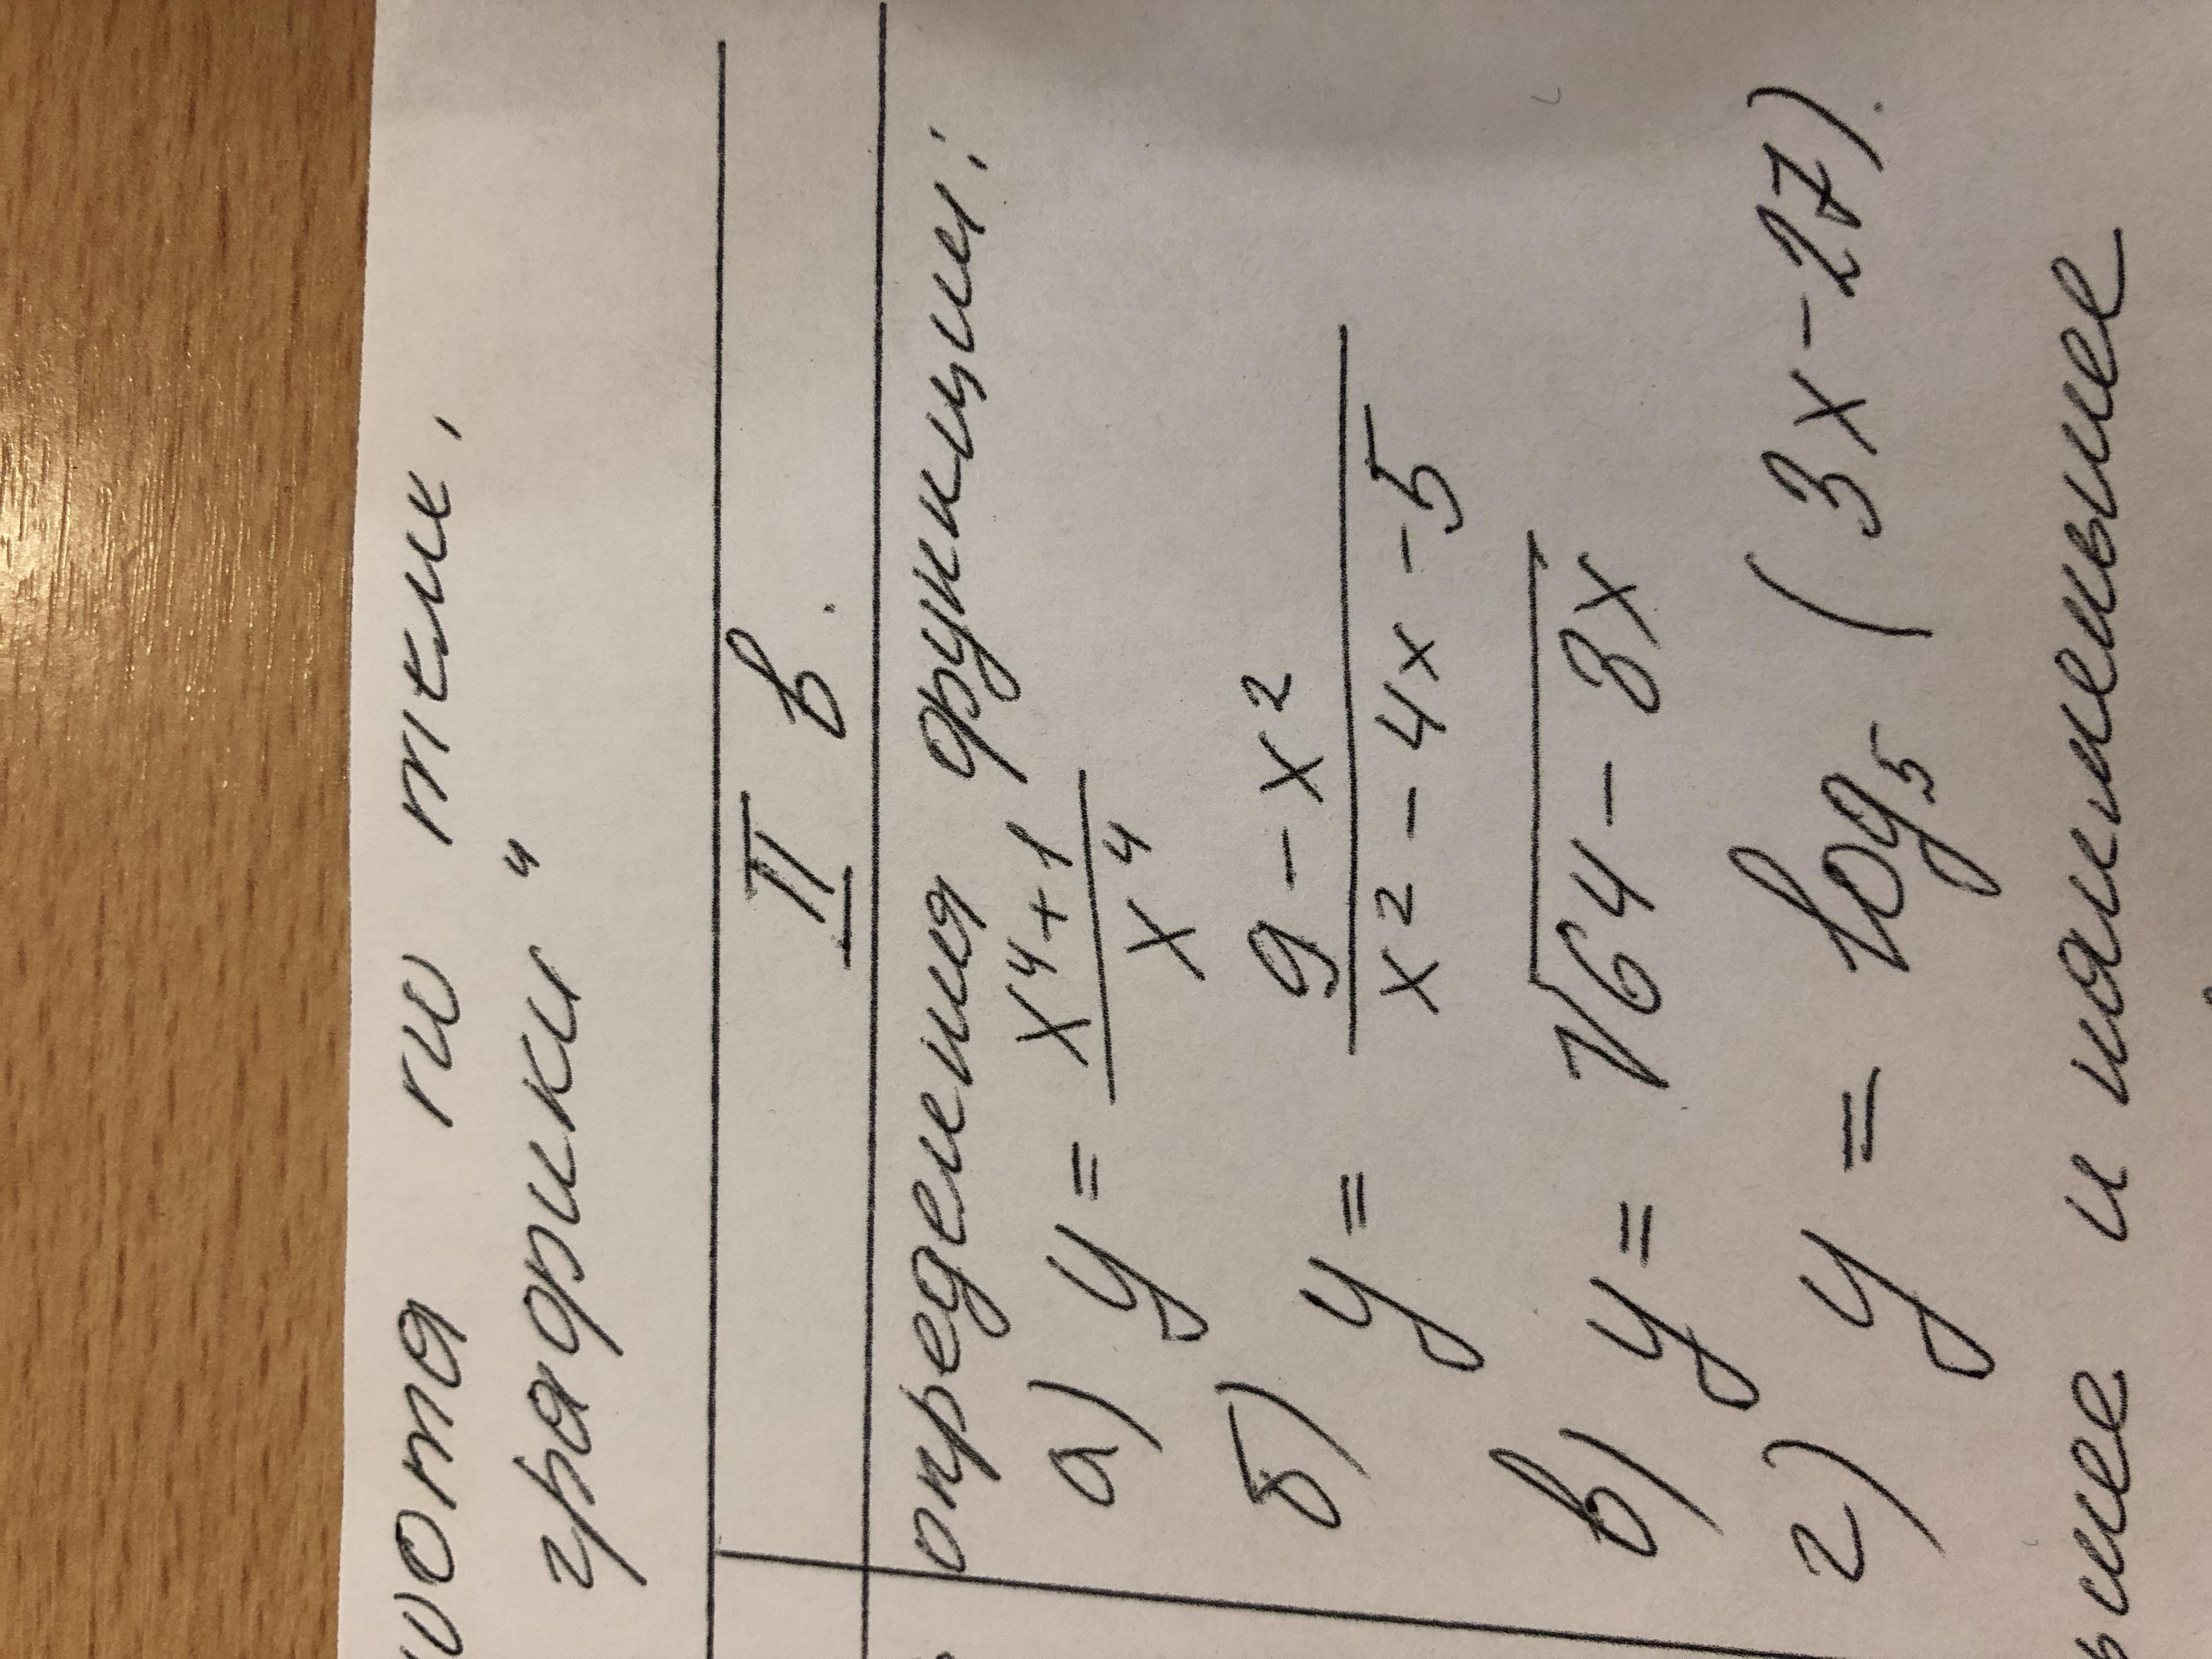 по теме,
графики"
II в.
определения функции:
а) y = x⁴+1 / x⁴
б) y = 9 - x² / x² - 4x - 5
в) y = √64 - 8x
г) y = log₅ (3x - 27).
и наименьшее